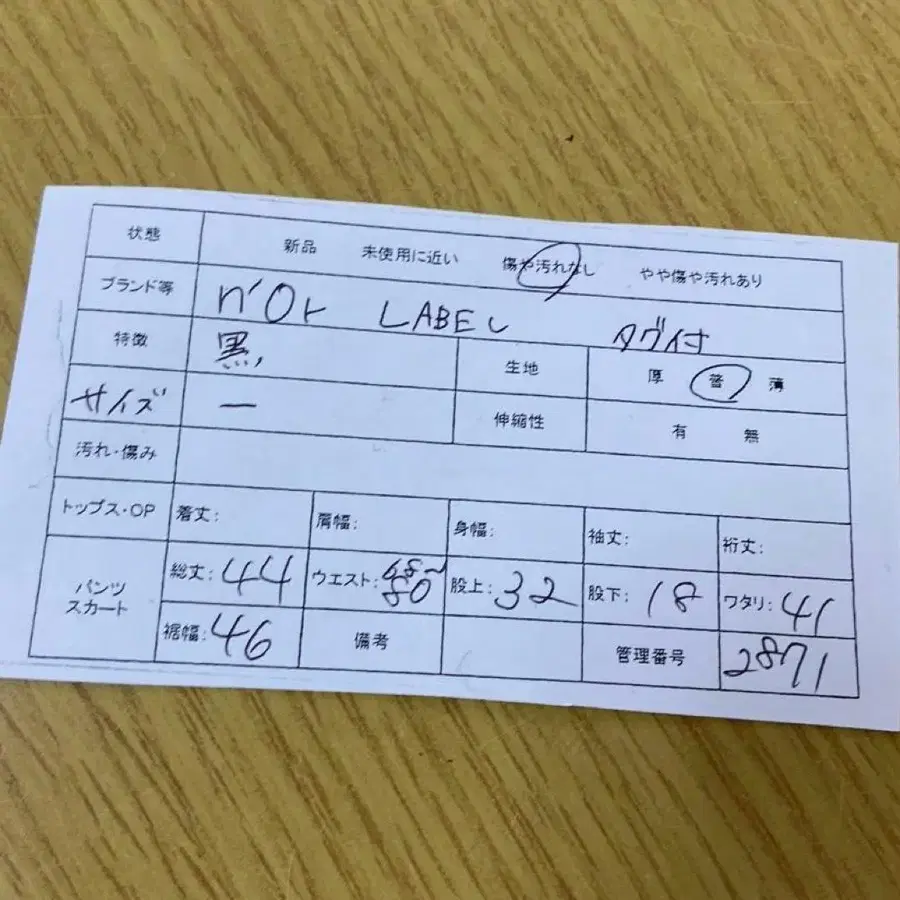 状態 新品 未使用に近い 傷や汚れなし やや傷や汚れあり
ブランド等 n'Or LABEL タグ付
特徴 黒 生地 厚 普 薄
サイズ ー 伸縮性 有 無
汚れ・傷み
トップス・OP 着丈: 肩幅: 身幅: 袖丈: 裄丈:
パンツ
スカート
総丈: 44 ウエスト: 68~
80 股上: 32 股下: 18 ワタリ: 41
裾幅: 46 備考 管理番号 2871